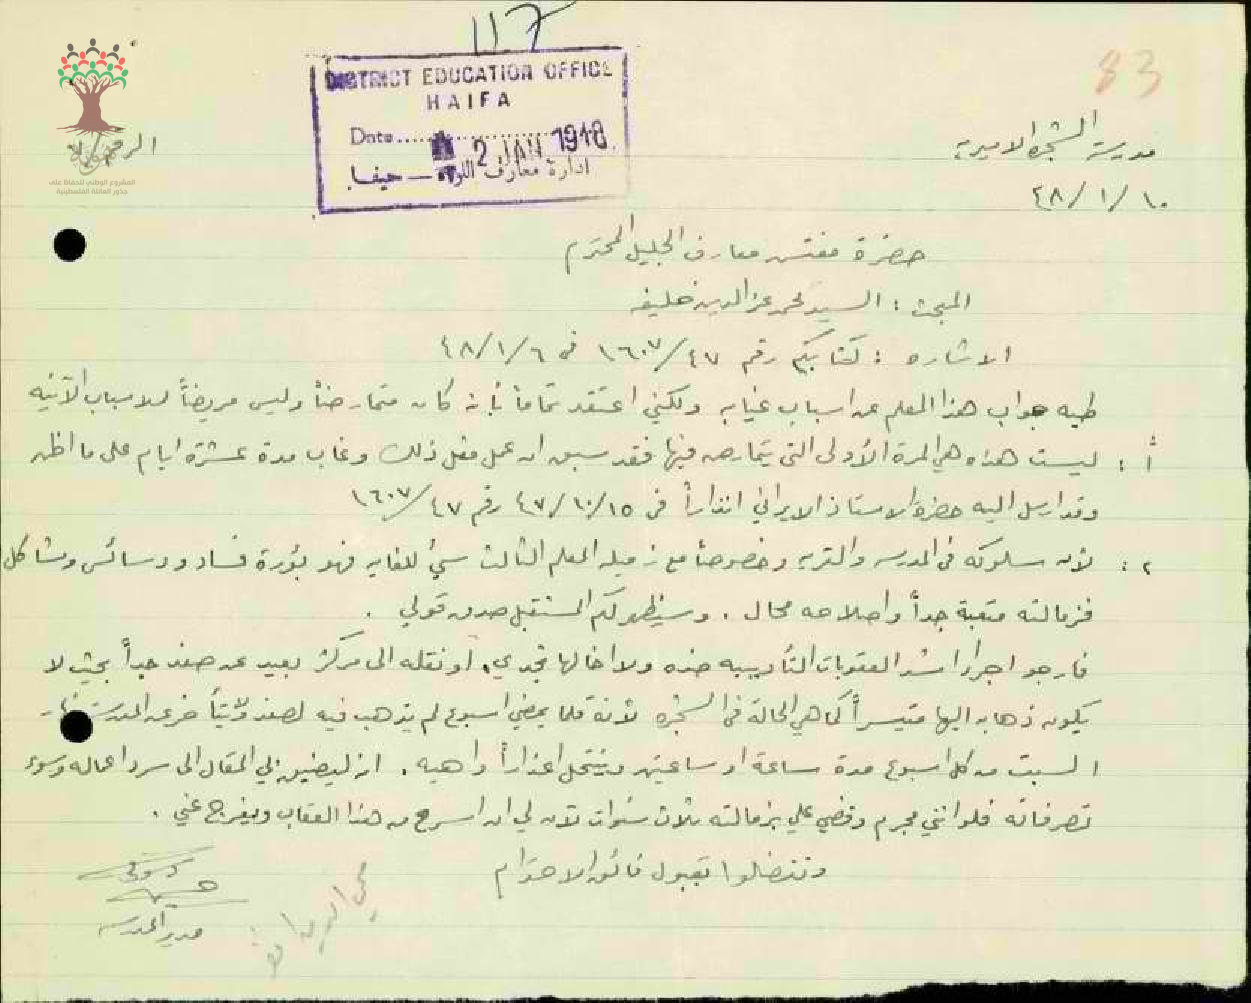 117
83
DISTRICT EDUCATION OFFICE
HAIFA
Date
2 JAN 1948
ادارة معارف اللواء — حيفا
الرقم
المشروع الوطني للحفاظ على
جذور العائلة الفلسطينية
مدرسة الشجره الاميرية
١٠/١/٤٨
حضرة مفتش معارف الجليل المحترم
المبحث : السيد محمد عز الدين خليفه
الاشاره : كتابكم رقم ١٦٠٧/٤٧ في ٤٨/١/٦
طيه جواب هذا المعلم عن اسباب غيابه ولكني اعتقد تماماً بأنه كان متمارضاً وليس مريضاً للاسباب الآتيه
أ : ليست هذه هي المرة الأولى التي يتمارض فيها فقد سبق ان عمل مثل ذلك وغاب مدة عشرة ايام على ما اظن
وقد ارسل اليه حضرة الاستاذ الايراني انذاراً في ٤٧/١٠/١٥ رقم ١٦٠٧/٤٧
٢ : لأن سلوكه في المدرسه والقريه وخصوصاً مع زميله المعلم الثالث سيئ للغايه فهو بؤرة فساد ودسائس ومشاكل
فزمالته متعبة جداً واصلاحه محال . وسيظهر لكم المستقبل صدق قولي .
فارجو اجراء اشد العقوبات التأديبيه ضده ولا اخالها تجدي، او نقله الى مركز بعيد عن صفد جداً بحيث لا
يكون ذهابه اليها متيسراً كما هي الحالة في الشجره لأنه قلما يمضي اسبوع لم يذهب فيه لصفد
السبت من كل اسبوع مدة ساعة او ساعتين وينتحل اعذاراً واهيه . اذ ليضيق بي المقال الى سرد اعماله وسوء
تصرفاته فلو انني مجرم وقضي علي بزمالته ثلاث سنوات لآن لي ان اسرح من هذا العقاب ويفرج عني .
وتفضلوا بقبول فائق الاحترام
مدير المدرسه